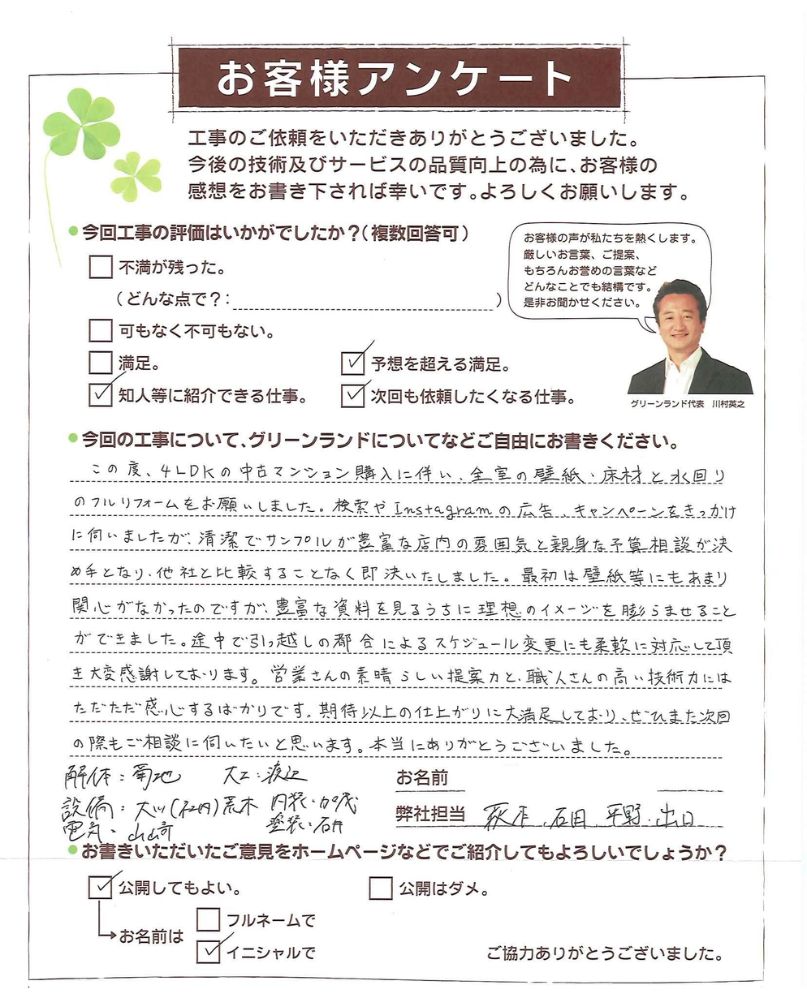 お客様アンケート
工事のご依頼をいただきありがとうございました。
今後の技術及びサービスの品質向上の為に、お客様の
感想をお書き下されば幸いです。よろしくお願いします。
●今回工事の評価はいかがでしたか？(複数回答可)
お客様の声が私たちを熱くします。
厳しいお言葉、ご提案、
もちろんお誉めの言葉など
どんなことでも結構です。
是非お聞かせください。
不満が残った。
(どんな点で？: )
可もなく不可もない。
満足。
予想を超える満足。
知人等に紹介できる仕事。
次回も依頼したくなる仕事。
グリーンランド代表 川村英之
●今回の工事について、グリーンランドについてなどご自由にお書きください。
この度、4LDKの中古マンション購入に伴い、全室の壁紙・床材と水回り
のフルリフォームをお願いしました。検索やInstagramの広告、キャンペーンをきっかけ
に伺いましたが、清潔でサンプルが豊富な店内の雰囲気と親身な予算相談が決
め手となり、他社と比較することなく即決いたしました。最初は壁紙等にもあまり
関心がなかったのですが、豊富な資料を見るうちに理想のイメージを膨らませること
ができました。途中で引っ越しの都合によるスケジュール変更にも柔軟に対応して頂
き大変感謝しております。営業さんの素晴らしい提案力と、職人さんの高い技術力には
ただただ感心するばかりです。期待以上の仕上がりに大満足しており、ぜひまた次回
の際もご相談に伺いたいと思います。本当にありがとうございました。
解体：菊地 大工：渡辺
お名前
設備：大川(社内)荒木 内装：加茂
弊社担当 荻本、石田 平野・出口
電気：山崎 塗装：石井
●お書きいただいたご意見をホームページなどでご紹介してもよろしいでしょうか？
公開してもよい。
公開はダメ。
お名前は
フルネームで
イニシャルで
ご協力ありがとうございました。